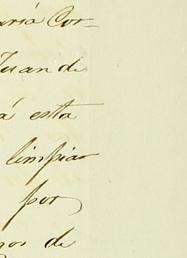 aría Cor-
Juan de
á esta
limpiar
por
nos de